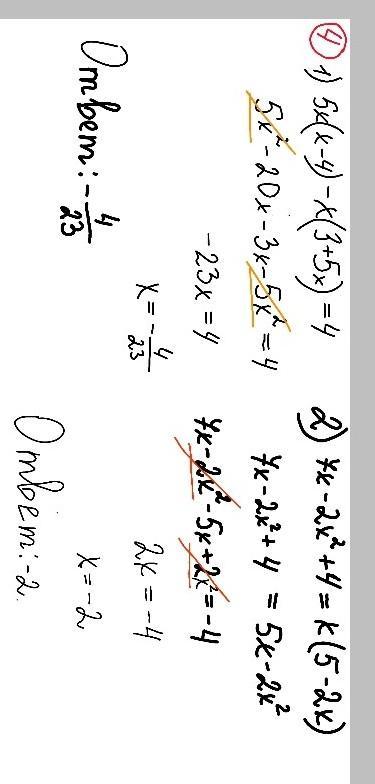 ④ 1) 5x(x-4)-x(3+5x)=4
5x²-20x-3x-5x²=4
-23x=4
x=-4/23
Ответ:-4/23
2) 7x-2x²+4=x(5-2x)
7x-2x²+4=5x-2x²
7x-2x²-5x+2x²=-4
2x=-4
x=-2
Ответ:-2.